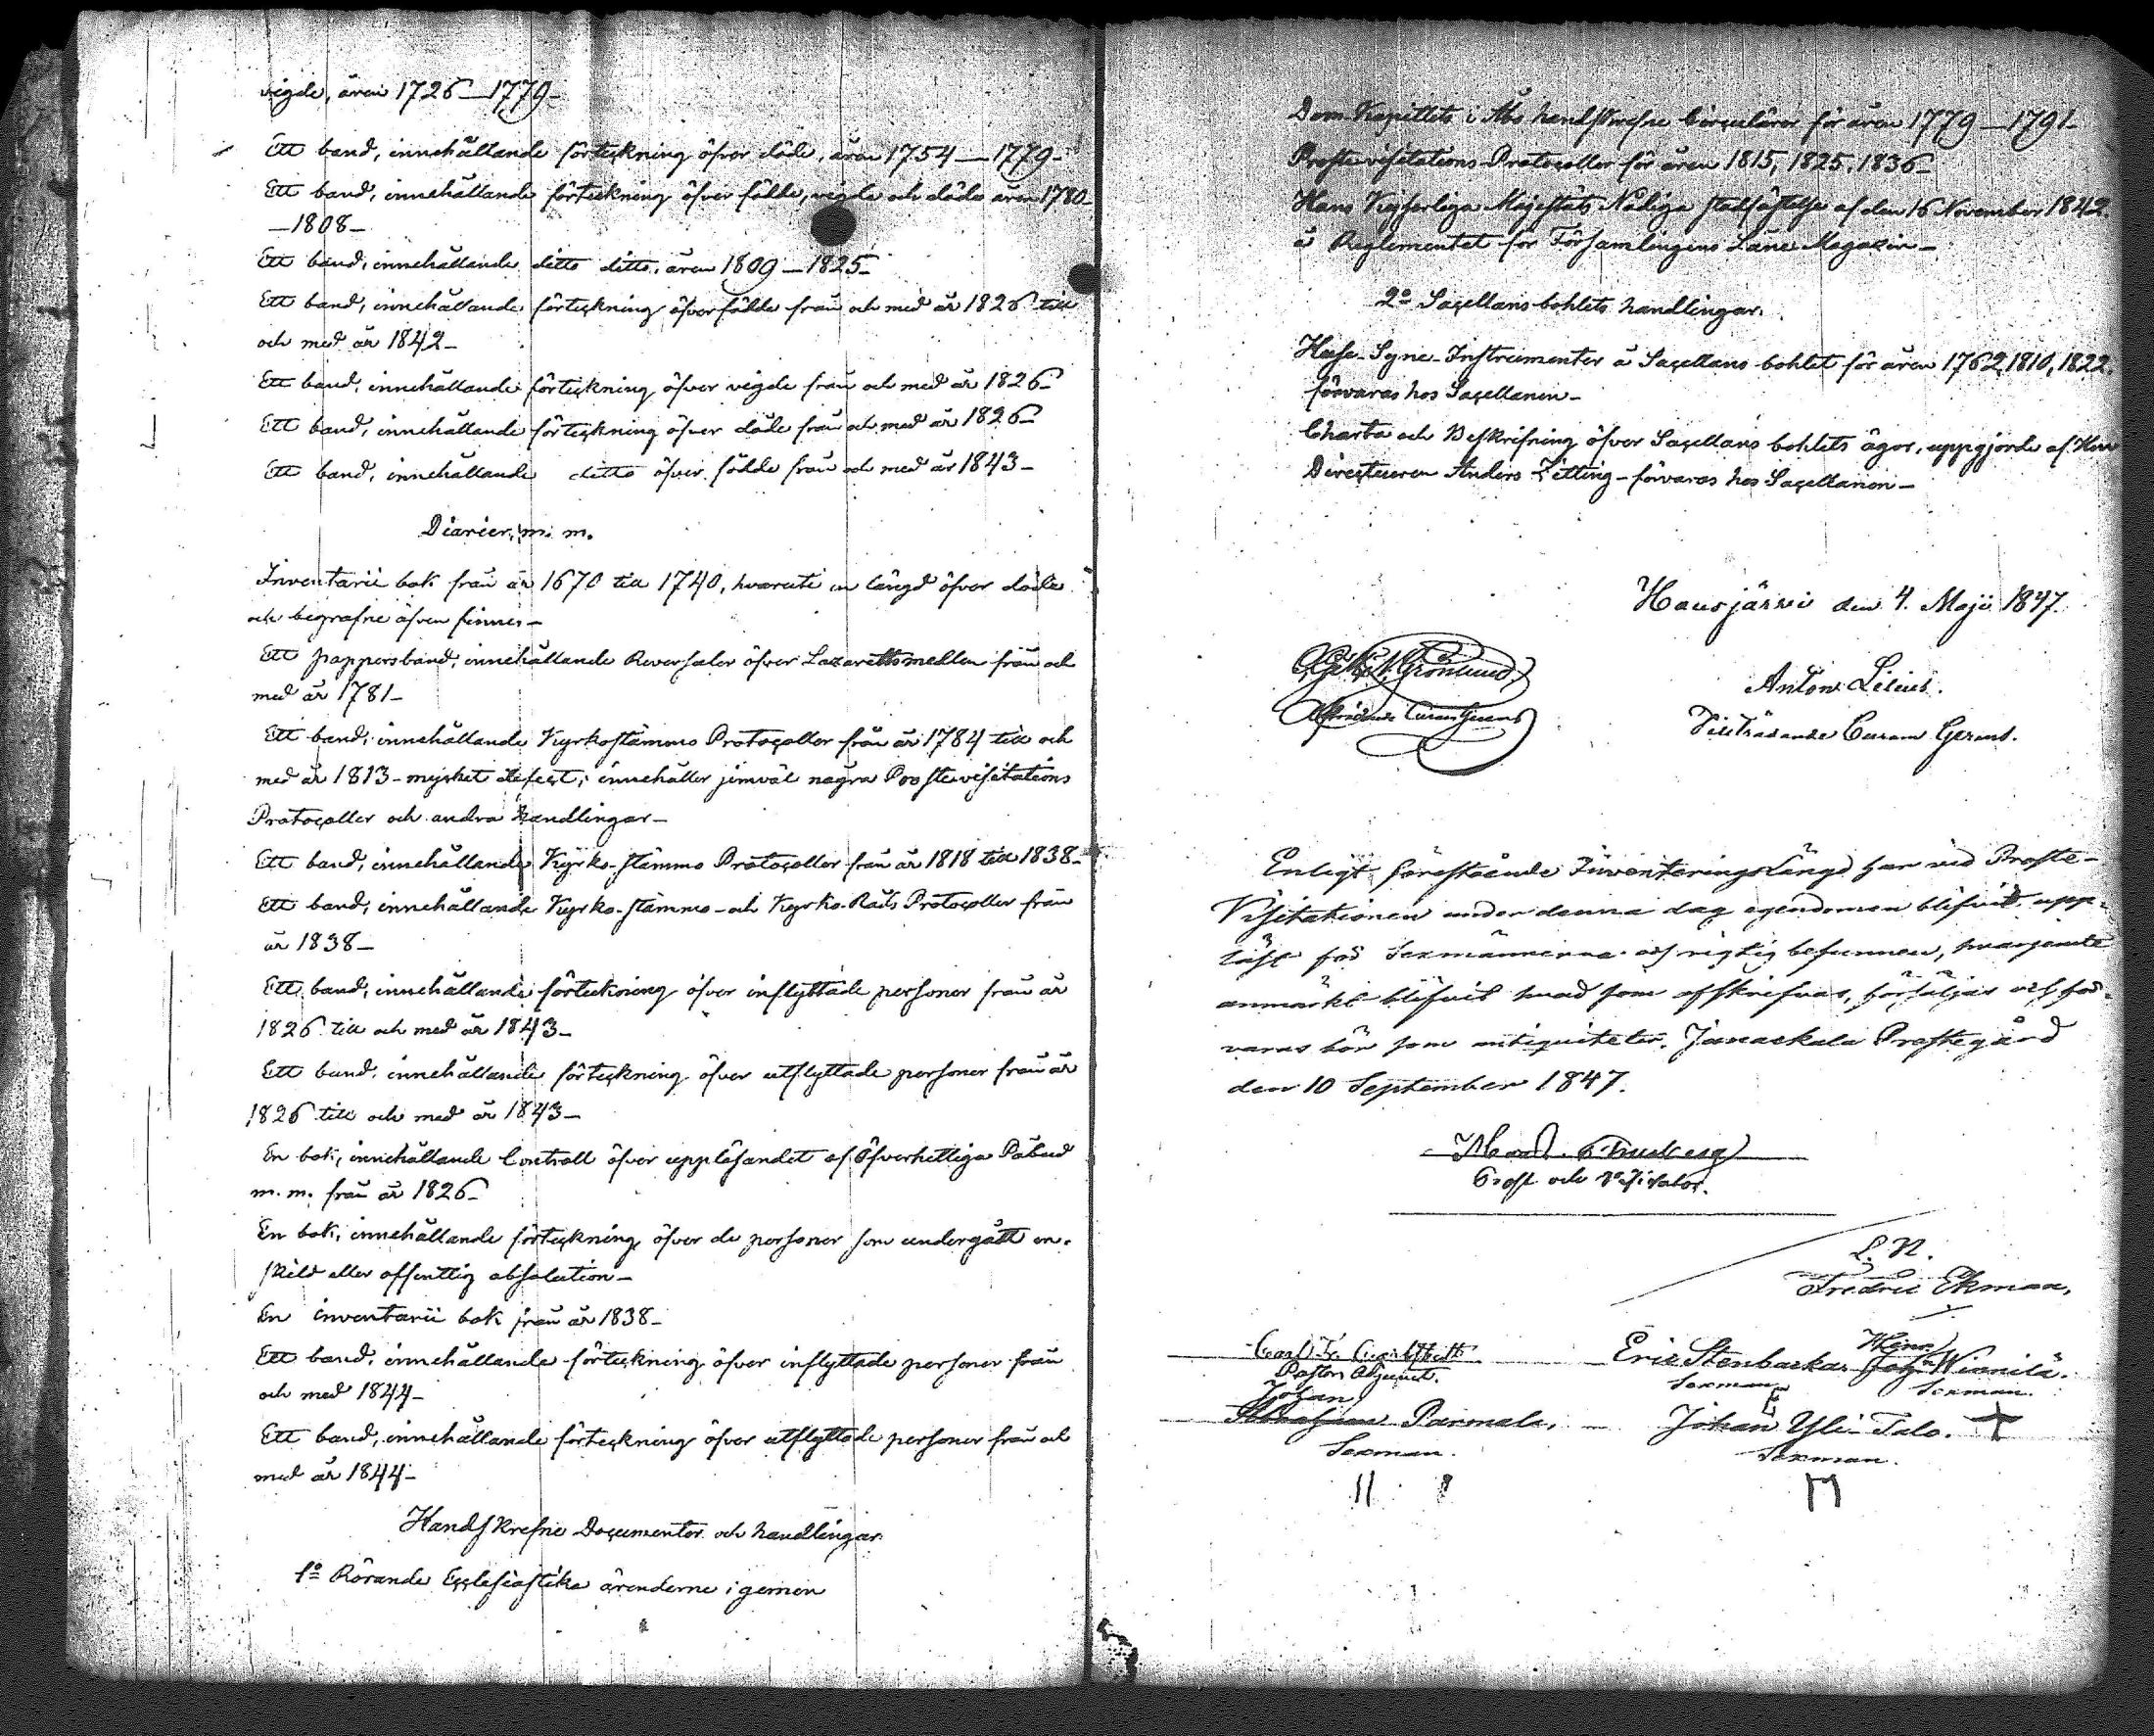 vigde, åren 1726–1779–
Ett band, innehållande förteckning öfver döde, åren 1754–1779–
Ett band, innehållande förteckning öfver födde, vigde och döde åren 1780–
–1808–
Ett band, innehållande ditto ditto, åren 1809–1825–
Ett band, innehållande förteckning öfver födde från och med år 1826 till
och med år 1842–
Ett band, innehållande förteckning öfver vigde från och med år 1826–
Ett band, innehållande förteckning öfver döde från och med år 1826–
Ett band, innehållande ditto öfver födde från och med år 1843–
Diarier, m. m.
Inventarii bok från år 1670 till 1740, hvaruti en längd öfver döde
och begrafne äfven finnes–
Ett pappersband, innehållande Reversaler öfver Lazarettsmedlen från och
med år 1781–
Ett band, innehållande Kyrkostämmo Protocoller från år 1784 till och
med år 1813–mycket defect; innehåller jemväl några Prostevisitations
Protocoller och andra handlingar–
Ett band, innehållande Kyrko-stämmo Protocoller från år 1818 till 1838–
Ett band, innehållande Kyrko-stämmo-och Kyrko-Råds Protocoller från
år 1838–
Ett band, innehållande förteckning öfver inflyttade personer från år
1826 till och med år 1843–
Ett band, innehållande förteckning öfver utflyttade personer från år
1826 till och med år 1843–
En bok, innehållande Controll öfver uppläsandet af Öfverhetliga Påbud
m. m. från år 1826–
En bok, innehållande förteckning öfver de personer som undergått en-
skild eller offentlig absolution–
En inventarii bok från år 1838–
Ett band, innehållande förteckning öfver inflyttade personer från
och med 1844–
Ett band, innehållande förteckning öfver utflyttade personer från och
med år 1844–
Handskrefne Documenter och handlingar
1º Rörande Ecclesiastike ärenderne i gemen
Dom-Kapitlets i Åbo handskrefne Circulärer för åren 1779–1791–
Prostevisitations-Protocoller för åren 1815, 1825, 1836–
Hans Kejserliga Majestäts Nådiga stadfästelse af den 16 November 1842.
å Reglementet för Församlingens Låne-Magazin–
2º Sacellans-bohlets handlingar.
Huse-Syne-Instrumenter å Sacellans-bohlet för åren 1762, 1810, 1822.
förvaras hos Sacellanen–
Charta och Beskrifning öfver Sacellans bohlets ägor, uppgjorde af Herr
Directeuren Anders Zitting–förvaras hos Sacellanen–
Hausjärvi den 4. Maji 1847.
Grönlund
Afträdande Curam Gerens
Anton Lilius.
Tillträdande Curam Gerens.
Enligt förestående Inventeringslängd har vid Proste-
Visitationen under denna dag egendomen blifvit upp-
läst för Sexmännerna och rigtig befunnen, hvarjemte
anmärkt blifvit hvad som afskrifvas, försäljas och för-
varas bör som antiquiteter. Janackala Prostegård
den 10 September 1847.
Prost och Visitator.
L. N.
Fredric Ekman,
Carl
Pastors Adjunct.
Eric Stenbacka Johan Winnilä.
Sexman Sexman.
Johan
Parmala,
Johan Yli-Talo.
Sexman.
Sexman.